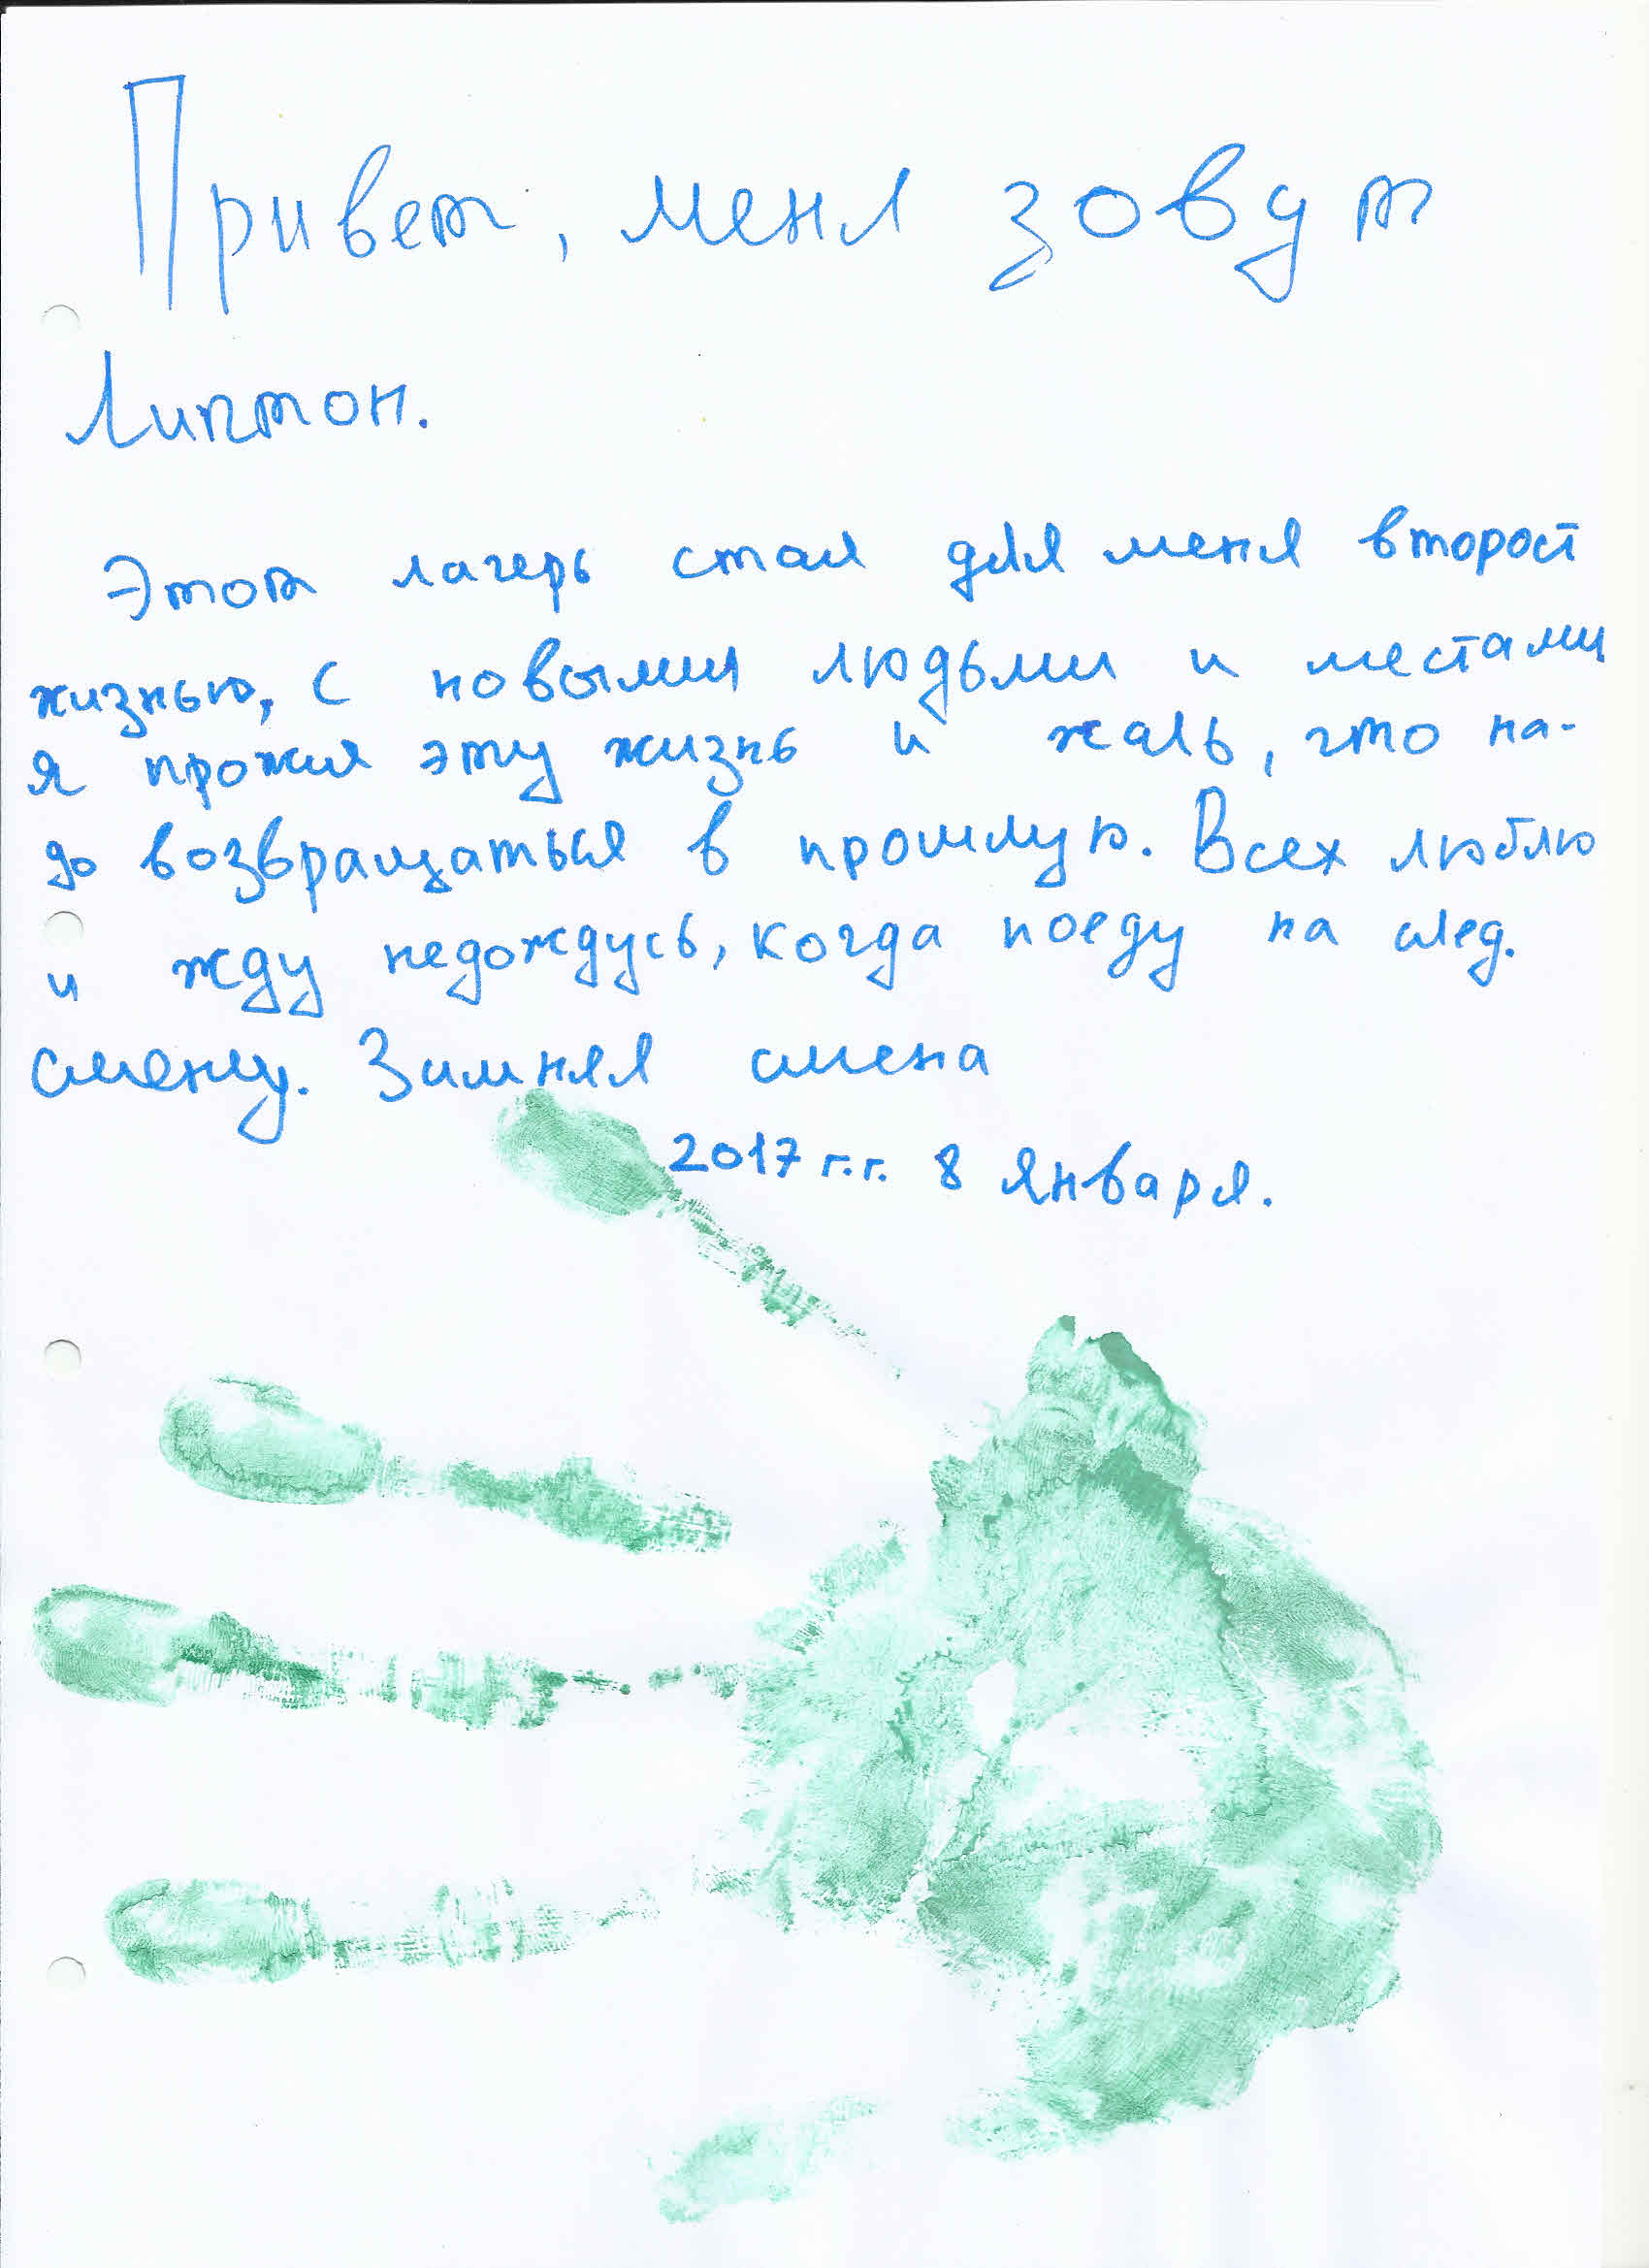 Привет, меня зовут
Липтон.
Этот лагерь стал для меня второй
жизнью, с новыми людьми и местами
я прожил эту жизнь и жаль, что на-
до возвращаться в прошлую. Всех люблю
и жду недождусь, когда поеду на след.
смену. Зимняя смена
2017 г.г. 8 января.